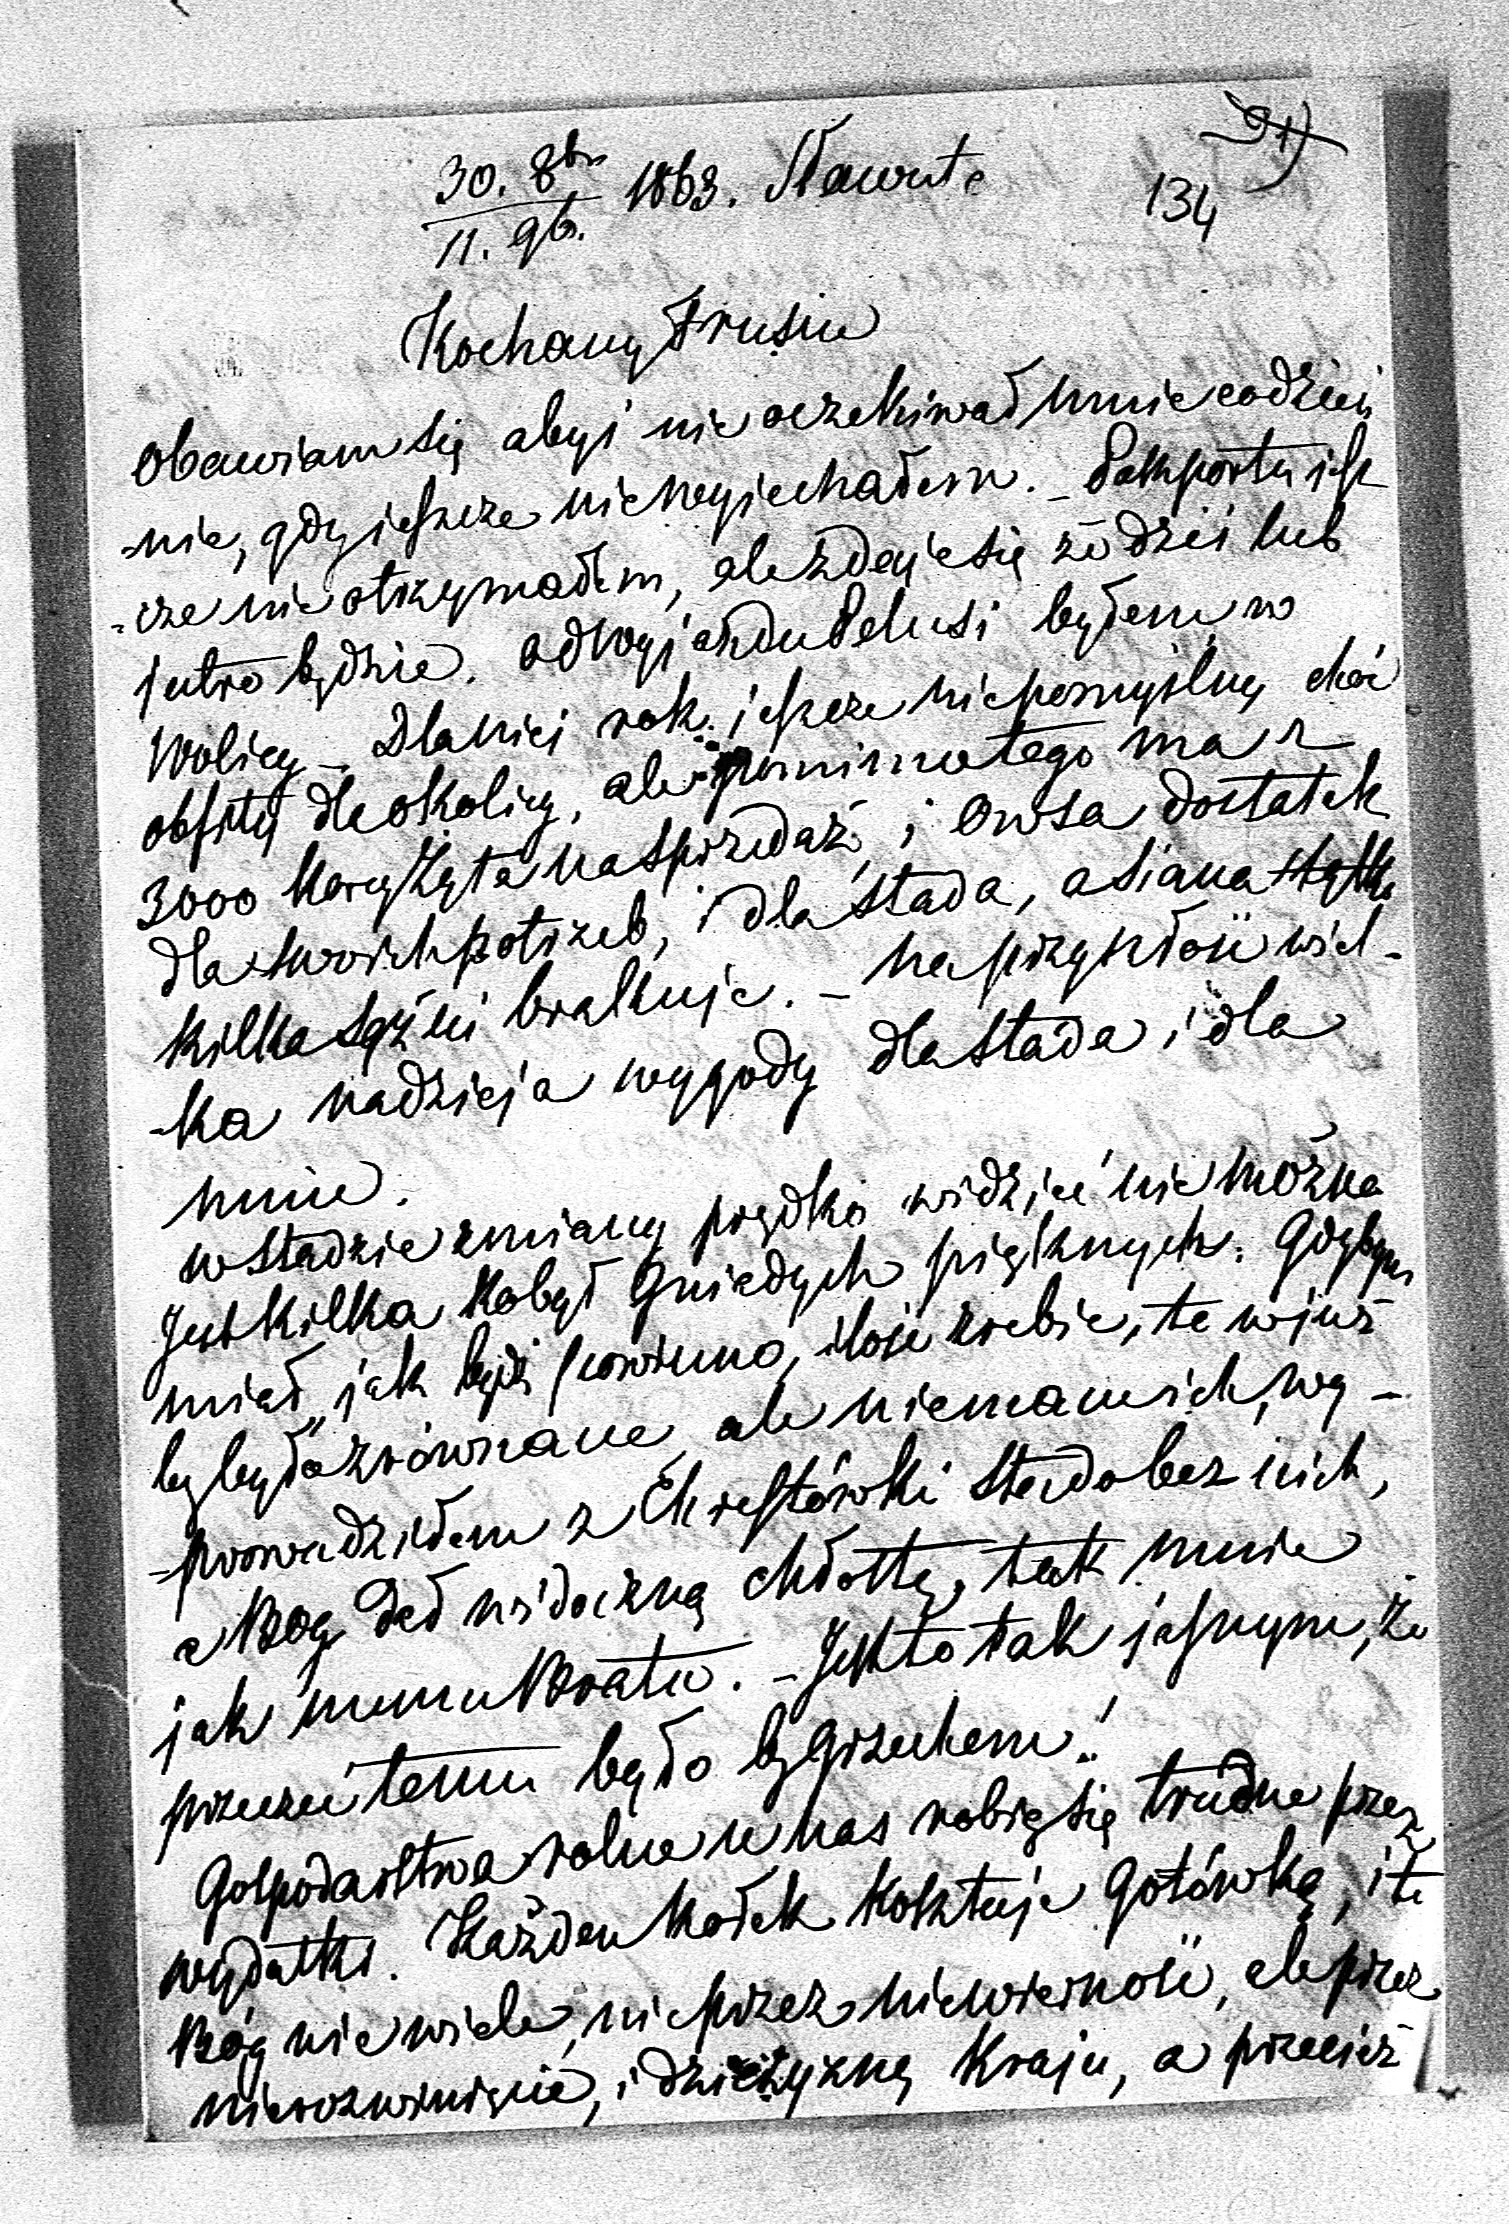 30. 8br 1863. Sławuta
11. 9b.
91)
134
Kochany Frusiu
Obawiam się abyś nie oczekiwał mnie codzień
-nie, gdy jeszcze nie wyjechałem. – Paszportu jesz
-cze nie otrzymałem, ale zdaje się że dziś lub
jutro będzie. Od wyjazdu Pelusi byłem w
Wolicy – Dla niej rok jeszcze niepomyślny choć
obfity dla okolicy, ale pomimo tego ma
3000 korcy Żyta na sprzedaż, i Owsa dostatek
dla swoich potrzeb, i dla stada, a siana
kilka sążni brakuje. – Na przyszłość wiel-
-ka nadzieja wygody dla stada i dla
mnie.
w stadzie zmiany prędko widzieć nie można
Jest kilka Kobył Gniadych pięknych. Gdybym
miał jak być powinno, ilość źrebie, to już
by było zrównane, ale nie mam ich, wy-
-prowadziłem z Chrestówki Stado bez nich,
a Bóg dał widoczną chłostę, tak mnie
jak memu Bratu. – Jest to tak jasnym, że
przeczyć temu było by grzechem!
Gospodarstwa rolne u nas robią się trudne przez
wydatki. Każden kołek kosztuje Gotówką, i to
Bóg wie wiele, nie przez niewierność, ale przez
nierozwinięcie, i dziczyznę Kraju, a przecież